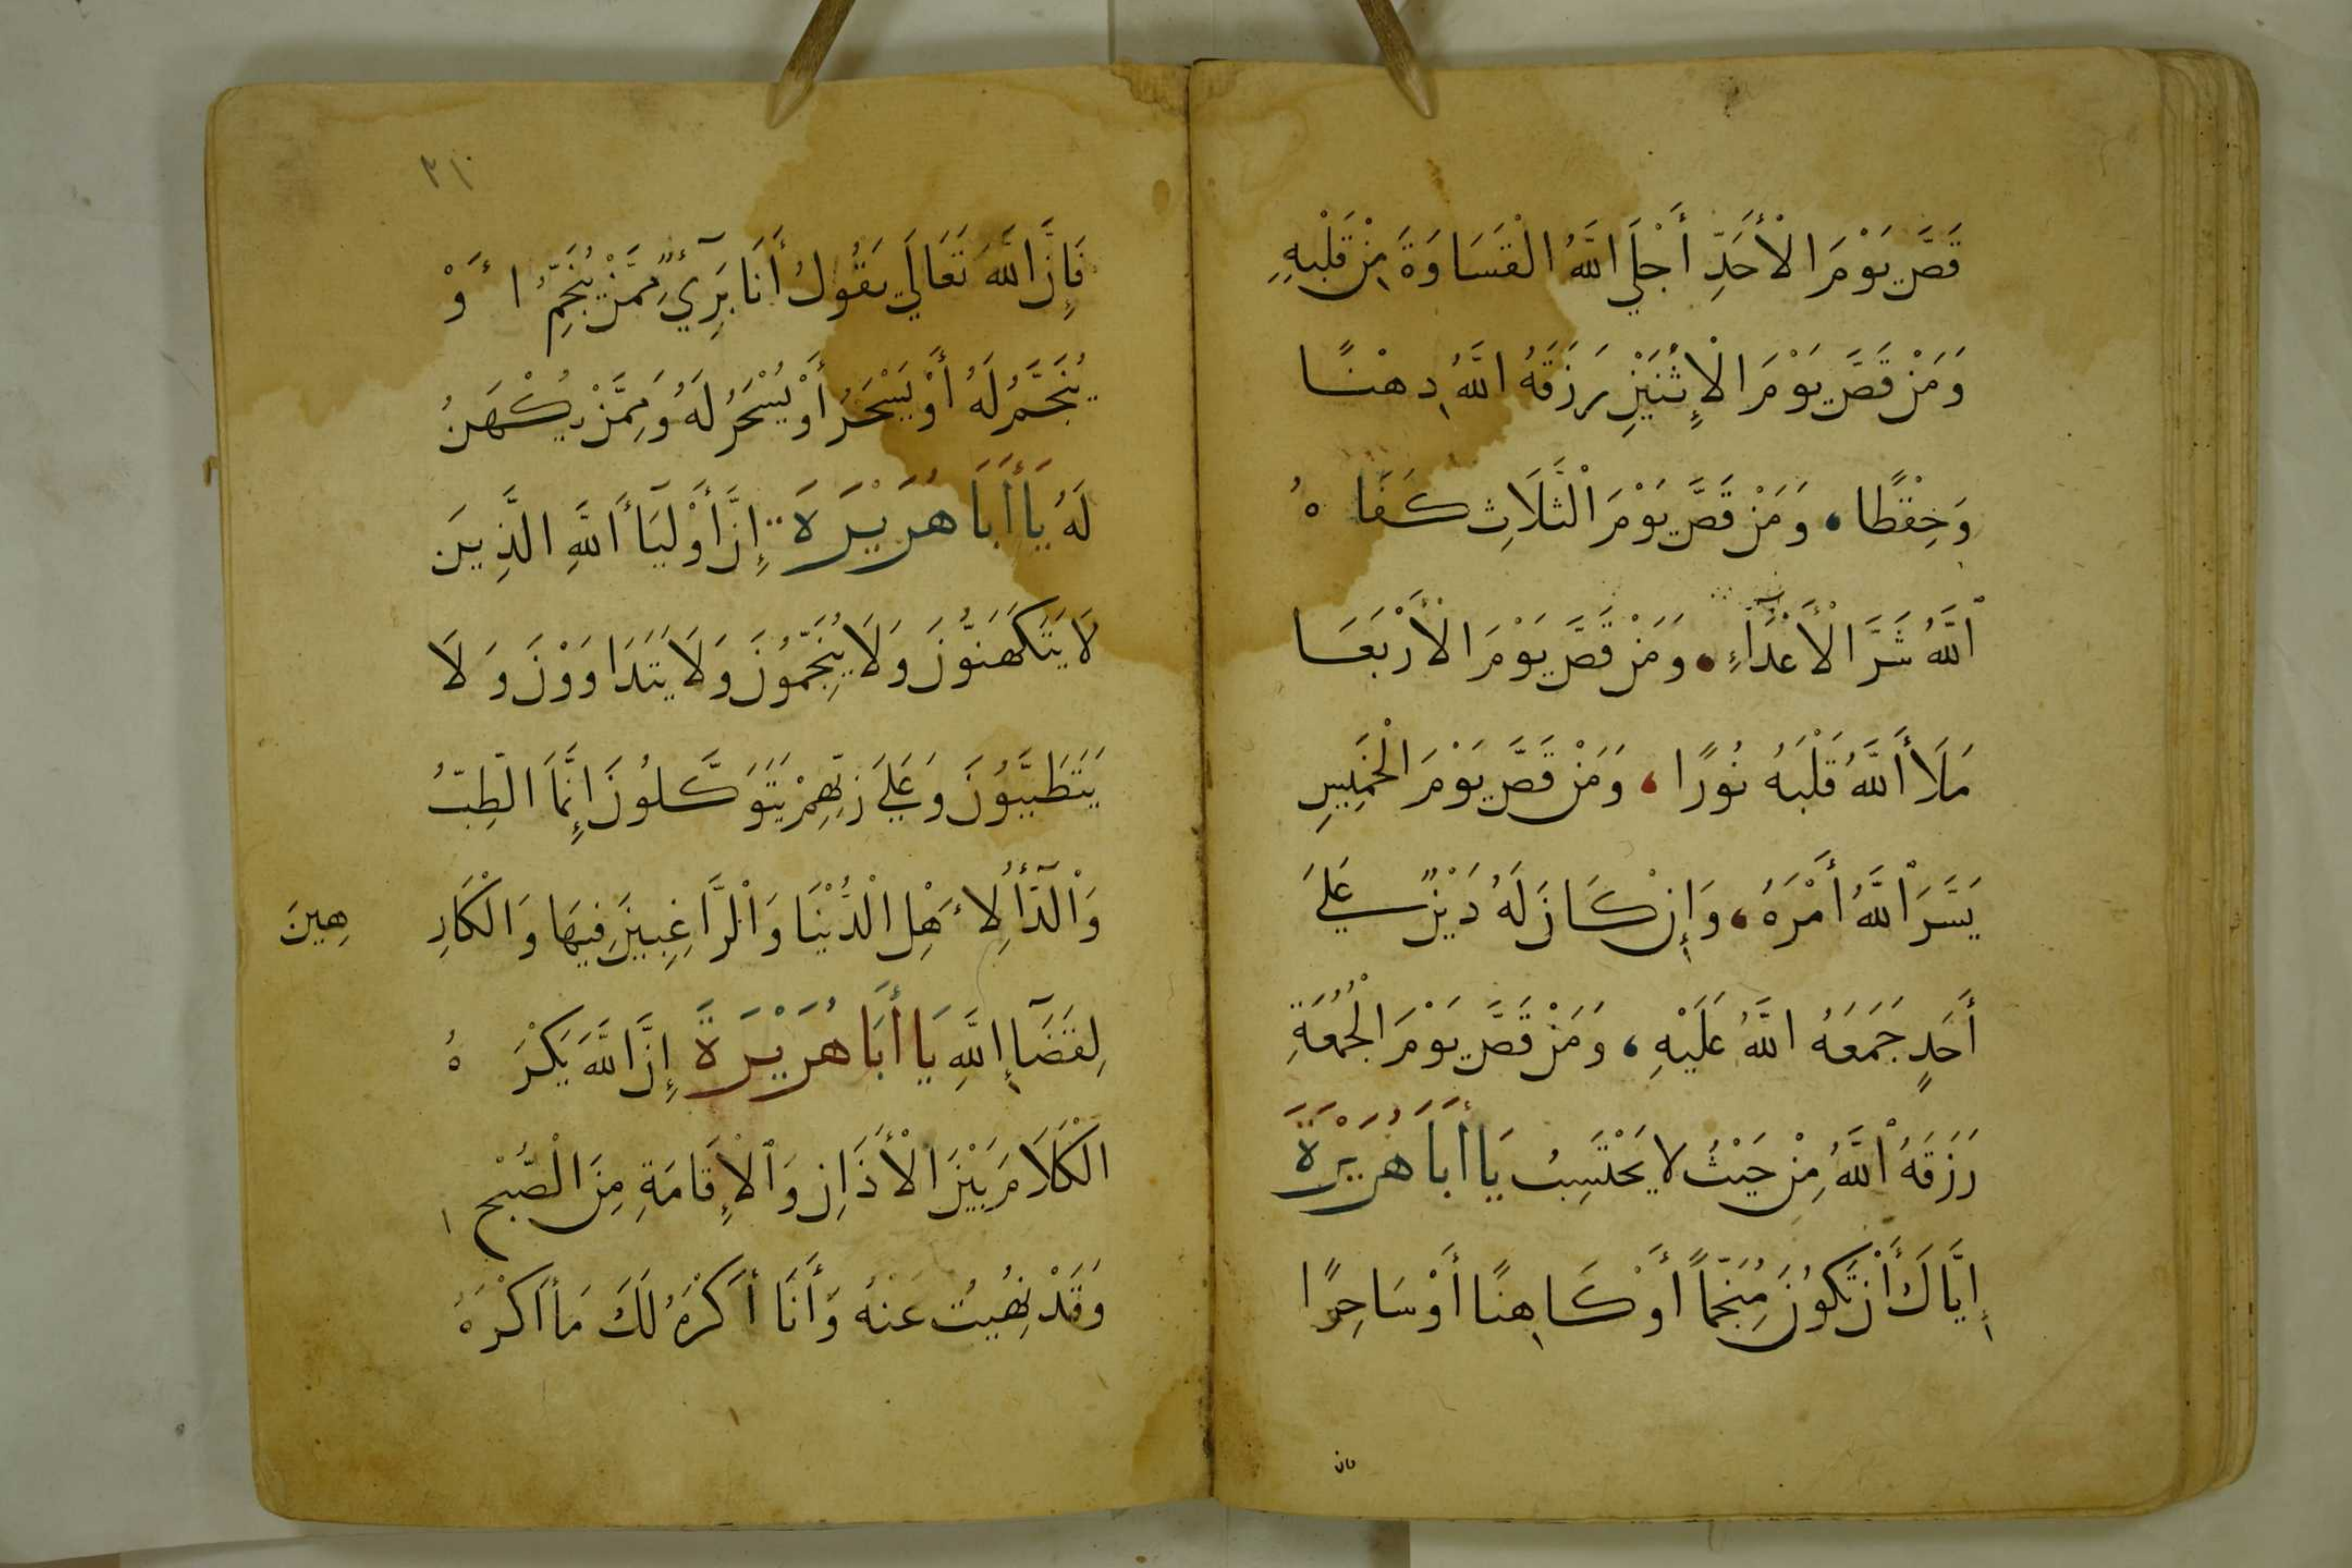 قَصَّ يَوْمَ الْأَحَدِ أَجْلَي اللَّهُ الْقَسَاوَةَ مِنْ قَلْبِهِ
وَمَنْ قَصَّ يَوْمَ الْإِثْنَيْنِ رَزَقَهُ اللَّهُ ذِهْنًا
وَحِفْظًا، وَمَنْ قَصَّ يَوْمَ الْثَّلَاثِ كَفَاهُ
اللَّهُ شَرَّ الْأَعْدَاءِ، وَمَنْ قَصَّ يَوْمَ الْأَرْبَعَا
مَلَأَ اللَّهُ قَلْبَهُ نُورًا، وَمَنْ قَصَّ يَوْمَ الْخَمِيسِ
يَسَّرَ اللَّهُ أَمْرَهُ، وَإِنْ كَانَ لَهُ دَيْنٌ عَلَي
أَحَدٍ جَمَعَهُ اللَّهُ عَلَيْهِ، وَمَنْ قَصَّ يَوْمَ الْجُمُعَةِ
رَزَقَهُ اللَّهُ مِنْ حَيْثُ لا يَحْتَسِبُ يَا أَبَا هُرَيْرَةَ
إِيَّاكَ أَنْ تَكُونَ مُنَجِّمًا أَوْ كَاهِنًا أَوْ سَاحِرًا
فان
٣١٠
فَإِنَّ اللَّهَ تَعَالَي يَقُولُ أَنَا بَرِيٓءٌ مِمَّنْ يُنَجِّمُ أَوْ
يُنَجَّمُ لَهُ أَوْ يَسْحَرُ أَوْ يُسْحَرُ لَهُ وَمِمَّنْ يَكْهَنُ
لَهُ يَا أَبَا هُرَيْرَةَ إِنَّ أَوْلِيَاءَ اللَّهِ الَّذِينَ
لَا يَتَكَهَّنُونَ وَلَا يُنَجِّمُونَ وَلَا يَتَدَاوَوْنَ وَلَا
يَتَطَبَّبُونَ وَعَلَي رَبِّهِمْ يَتَوَكَّلُونَ إِنَّمَا الْطِّبُّ
وَالْدَّآءُ لِأَهْلِ الْدُّنْيَا وَالْرَّاغِبِينَ فِيهَا وَالْكَارِ هِينَ
لِقَضَآءِ اللَّهِ يَا أَبَا هُرَيْرَةَ إِنَّ اللَّهَ يَكْرَهُ
الْكَلَامَ بَيْنَ الْأَذَانِ وَالْإِقَامَةِ مِنَ الْصُّبْحِ
وَقَدْ نُهِيتُ عَنْهُ وَأَنَا أَكْرَهُ لَكَ مَا أَكْرَهُ